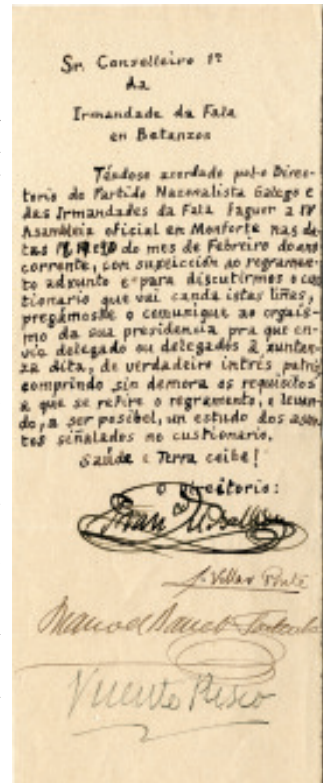 Sr. Conselleiro 1º
da
Irmandade da Fala
en Betanzos
Téndose acordado pol-o Direc-
torio do Partido Nazonalista Galego e
das Irmandades da Fala faguer a IV
Asambleia oficial en Monforte nas da-
tas 18, 19 e 20 do mes de Febreiro do ano
corrente, con suxeicción ao regramen-
to adxunto e para discutirmos o cus-
tionario que vai canda istas liñas,
pregámoslle o comunique ao orgaís-
mo da sua presidencia pra que en-
víe delegado ou delegados á xuntan-
za dita, de verdadeiro intrés patrio,
comprindo sin demora os requisitos
a que se refire o regramento, e levan-
do, a ser posibel, un estudo dos asun-
tos señalados no custionario.
Saúde e Terra ceibe!
O Direitorio:
A. Villar Ponte
Manoel Banet Fontenla
Vicente Risco